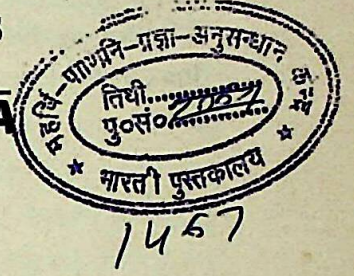 महर्षि-पाणिनि-प्रज्ञा-अनुसन्धान
तिथी..................
पु०सं०
* भारती पुस्तकालय *
1467